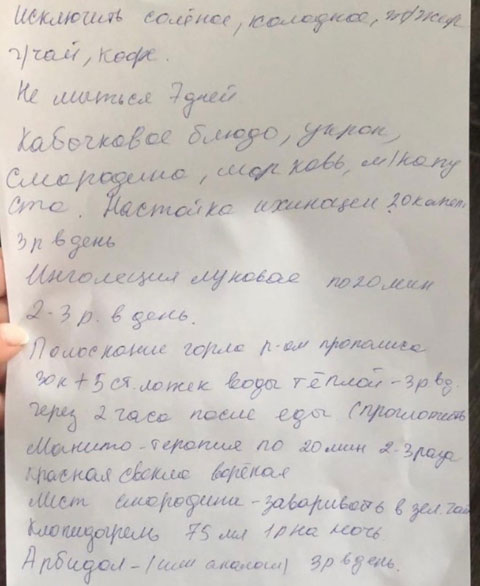 Исключить солёное, холодное, ж/жир
ч/чай, кофе.
Не мыться 7 дней
Кабачковое блюдо, укроп,
смородина, морковь, м/капу
ста. Настойка ихинацеи 20 капель
3 р в день
Инголяция луковая по 20 мин
2-3 р. в день.
Полоскание горла р-ом прополиса
30к + 5 ст. ложек воды тёплой - 3 р в д.
через 2 часа после еды (проглотить
Магнито-терапия по 20 мин 2-3 раза
красная свекла вареная
Лист смородины - заваривать в зел. чай
Клопидогрель 75 мл 1 р на ночь
Арбидол - (или аналоги) 3 р в день.